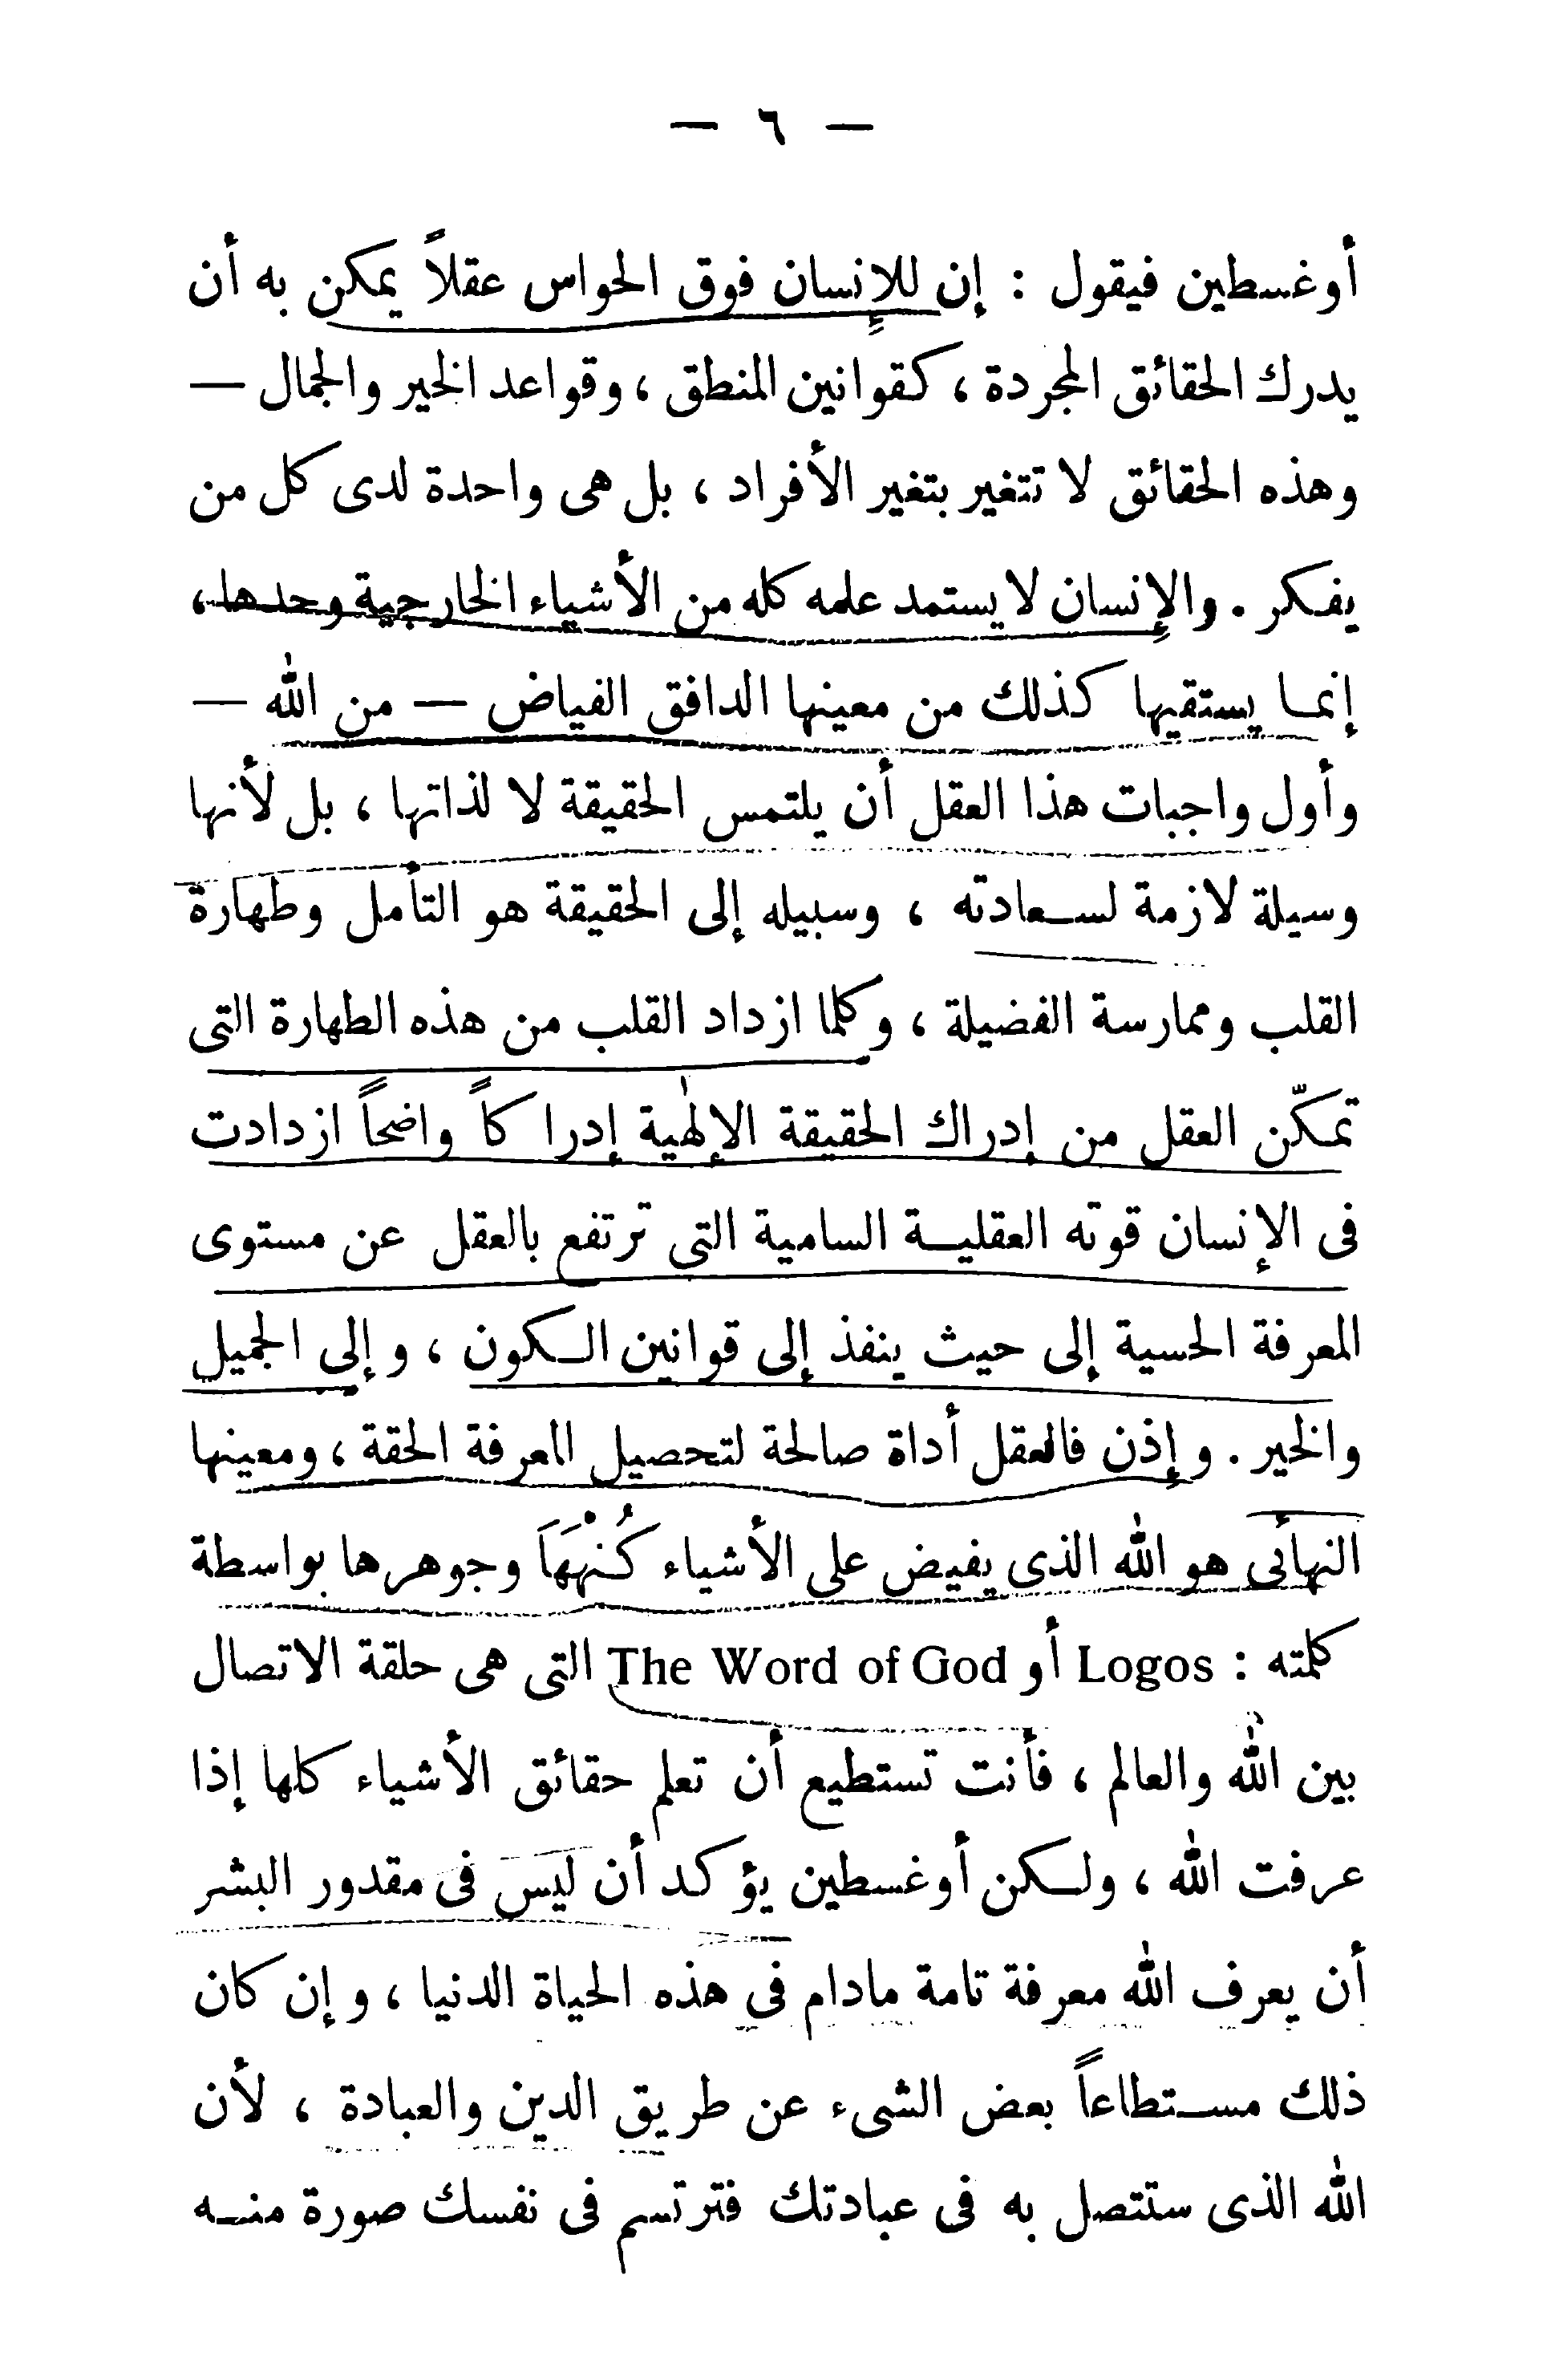 — ٦ —
أوغسطين فيقول : إن للإِنسان فوق الحواس عقلاً يمكن به أن
يدرك الحقائق المجردة ، كقوانين المنطق ، وقواعد الخير والجمال —
وهذه الحقائق لا تتغير بتغير الأفراد ، بل هى واحدة لدى كل من
يفكر . والإِنسان لا يستمد علمه كله من الأشياء الخارجية وحدها ،
إنما يستقيها كذلك من معينها الدافق الفياض — من الله —
وأول واجبات هذا العقل أن يلتمس الحقيقة لا لذاتها ، بل لأنها
وسيلة لازمة لسعادته ، وسبيله إلى الحقيقة هو التأمل وطهارة
القلب وممارسة الفضيلة ، وكلما ازداد القلب من هذه الطهارة التى
تمكّن العقل من إدراك الحقيقة الإلٰهية إدراكاً واضحاً ازدادت
فى الإنسان قوته العقلية السامية التى ترتفع بالعقل عن مستوى
المعرفة الحسية إلى حيث ينفذ إلى قوانين الكون ، وإلى الجميل
والخير . وإذن فالعقل أداة صالحة لتحصيل المعرفة الحقة ، ومعينها
النهائى هو الله الذى يفيض على الأشياء كُنْهَهَا وجوهرها بواسطة
كلمته : Logos أو The Word of God التى هى حلقة الاتصال
بين الله والعالم ، فأنت تستطيع أن تعلم حقائق الأشياء كلها إذا
عرفت الله ، ولكن أوغسطين يؤكد أن ليس فى مقدور البشر
أن يعرف الله معرفة تامة مادام فى هذه الحياة الدنيا ، وإن كان
ذلك مستطاعاً بعض الشىء عن طريق الدين والعبادة ، لأن
الله الذى ستتصل به فى عبادتك فترتسم فى نفسك صورة منه